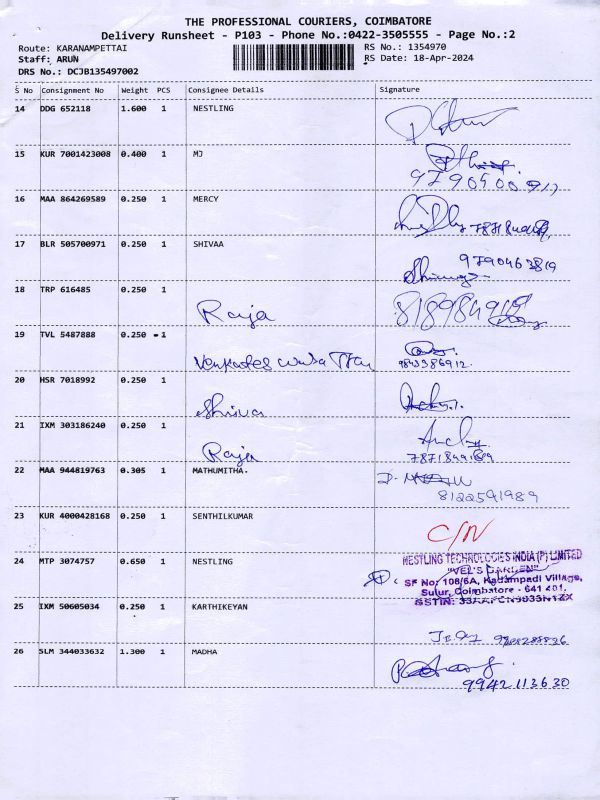 THE PROFESSIONAL COURIERS, COIMBATORE
Delivery Runsheet - P103 - Phone No.:0422-3505555 - Page No.:2
Route: KARANAMPETTAI RS No.: 1354970
Staff: ARUN RS Date: 18-Apr-2024
DRS No.: DCJB135497002
S No Consignment No Weight PCS Consignee Details Signature
14 DDG 652118 1.600 1 NESTLING
15 KUR 7001423008 0.400 1 MJ
16 MAA 864269589 0.250 1 MERCY
17 BLR 505700971 0.250 1 SHIVAA 9790463819
18 TRP 616485 0.250 1
Raja
19 TVL 5487888 0.250 1
9843386912
20 HSR 7018992 0.250 1
Shiva
21 IXM 303186240 0.250 1
Raja
22 MAA 944819763 0.305 1 MATHUMITHA.
8122591989
23 KUR 4000428168 0.250 1 SENTHILKUMAR
C/N
24 MTP 3074757 0.650 1 NESTLING
NESTLING TECHNOLOGIES INDIA (P) LIMITED
"VEL'S GARDEN"
SF No: 108/6A, Kadampadi Village,
Sulur, Coimbatore - 641 401.
25 IXM 50605034 0.250 1 KARTHIKEYAN
26 SLM 344033632 1.300 1 MADHA
9942113630